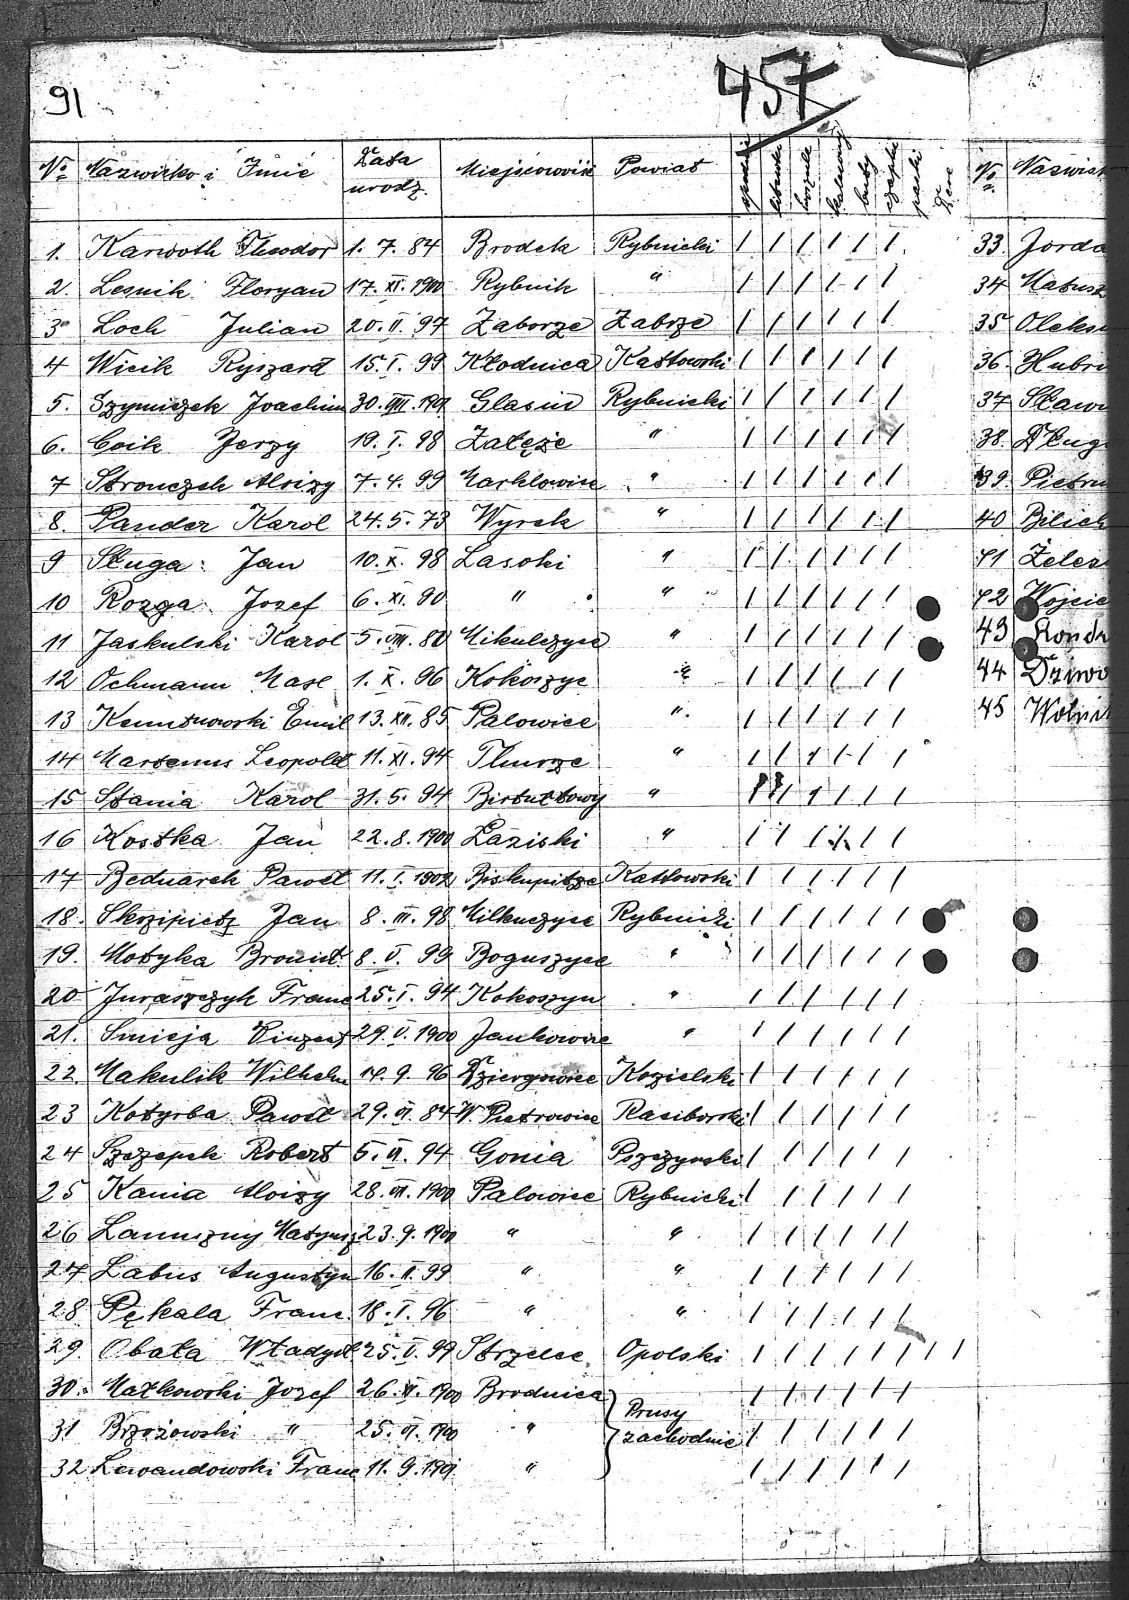 91
457
No Nazwisko i Imię Data urodz. Miejscowość Powiat spodnie bluzka koszule kalesony buty czapki paski Dere
1. Karwoth Theodor 1. 7. 84 Brodek Rybnicki / / / / / /
2. Lesnik Floryan 17. XI. 1900 Rybnik " / / / / / /
3 Loch Julian 20. II. 97 Zaborze Zabrze / / / / / /
4 Wicik Ryszard 15. I. 99 Kłodnica Kattowski / / / / / /
5. Szymiczek Joachim 30. VIII. 1901 Glasin Rybnicki / / / / / /
6. Coik Jerzy 19. I. 98 Załęże " / / / / / /
7 Stronczek Aloizy 7. 4. 99 Marklowice " / / / / / /
8. Pander Karol 24. 5. 73 Wyrek " / / / / / /
9 Sługa Jan 10. X. 98 Lasoki " / / / / / /
10 Rozga Jozef 6. XI. 90 " " / / / / / /
11 Jaskulski Karol 5. VIII. 80 Mikulczyce " / / / / / /
12 Ochmann Maxe 1. X. 96 Kokoszyc " / / / / / /
13 Emil 13. XII. 85 Palowice " / / / / / /
14 Martenus Leopold 11. XI. 94 Thurze " / / / / / /
15 Stania Karol 31. 5. 94 Birtułtowy " / / / / / /
16 Kostka Jan 22. 8. 1900 Łaziski " / / / / / /
17 Bednarek Paweł 11. I. 1902 Biskupitze Kattowski / / / / / /
18. Skrzipietz Jan 8. III. 98 Milkuczyce Rybnicki / / / / / /
19. Motyka Broni 8. V. 99 Boguszyce " / / / / / /
20 Juraszczyk Franc 25. I. 94 Kokoszyn " / / / / / /
21. Smieja Vinzent 29. V. 1900 Jankowice " / / / / / /
22. Makulik Wilhelm 14. 9. 96 Dziergowice Kozielski / / / / / /
23 Kotyrba Paweł 29. VI. 84 W. Pietrowice Raciborski / / / / / /
24 Szczepek Robert 5. VI. 94 Gonia Pszczynski / / / / / /
25 Kania Aloizy 28. VII. 1900 Palowice Rybnicki / / / / / /
26 Lanuszny Matyusz 23. 9. 1900 " " / / / / / /
27 Labus Augustyn 16. II. 99 " " / / / / / /
28 Pękala Franc. 18. I. 96 " " / / / / / /
29. Obała Władysł 25. V. 99 Strzelce Opolski / / / / / / / /
30. Małkowski Jozef 26. XI. 1900 Brodnica Prusy / / / / / /
31 Brzozowski " 25. VI. 1900 " zachodnie / / / / / /
32 Lewandowski Franc 11. 9. 1901 " / / / / / /
No Nazwisk
33. Jorda
34 Matusz
35 Oleks
36. Hubri
37 Sław
38. Dług
39. Pietru
40 Bilich
41 Żelez
42 Wojcie
43 Kondr
44 Dziwo
45 Wolni